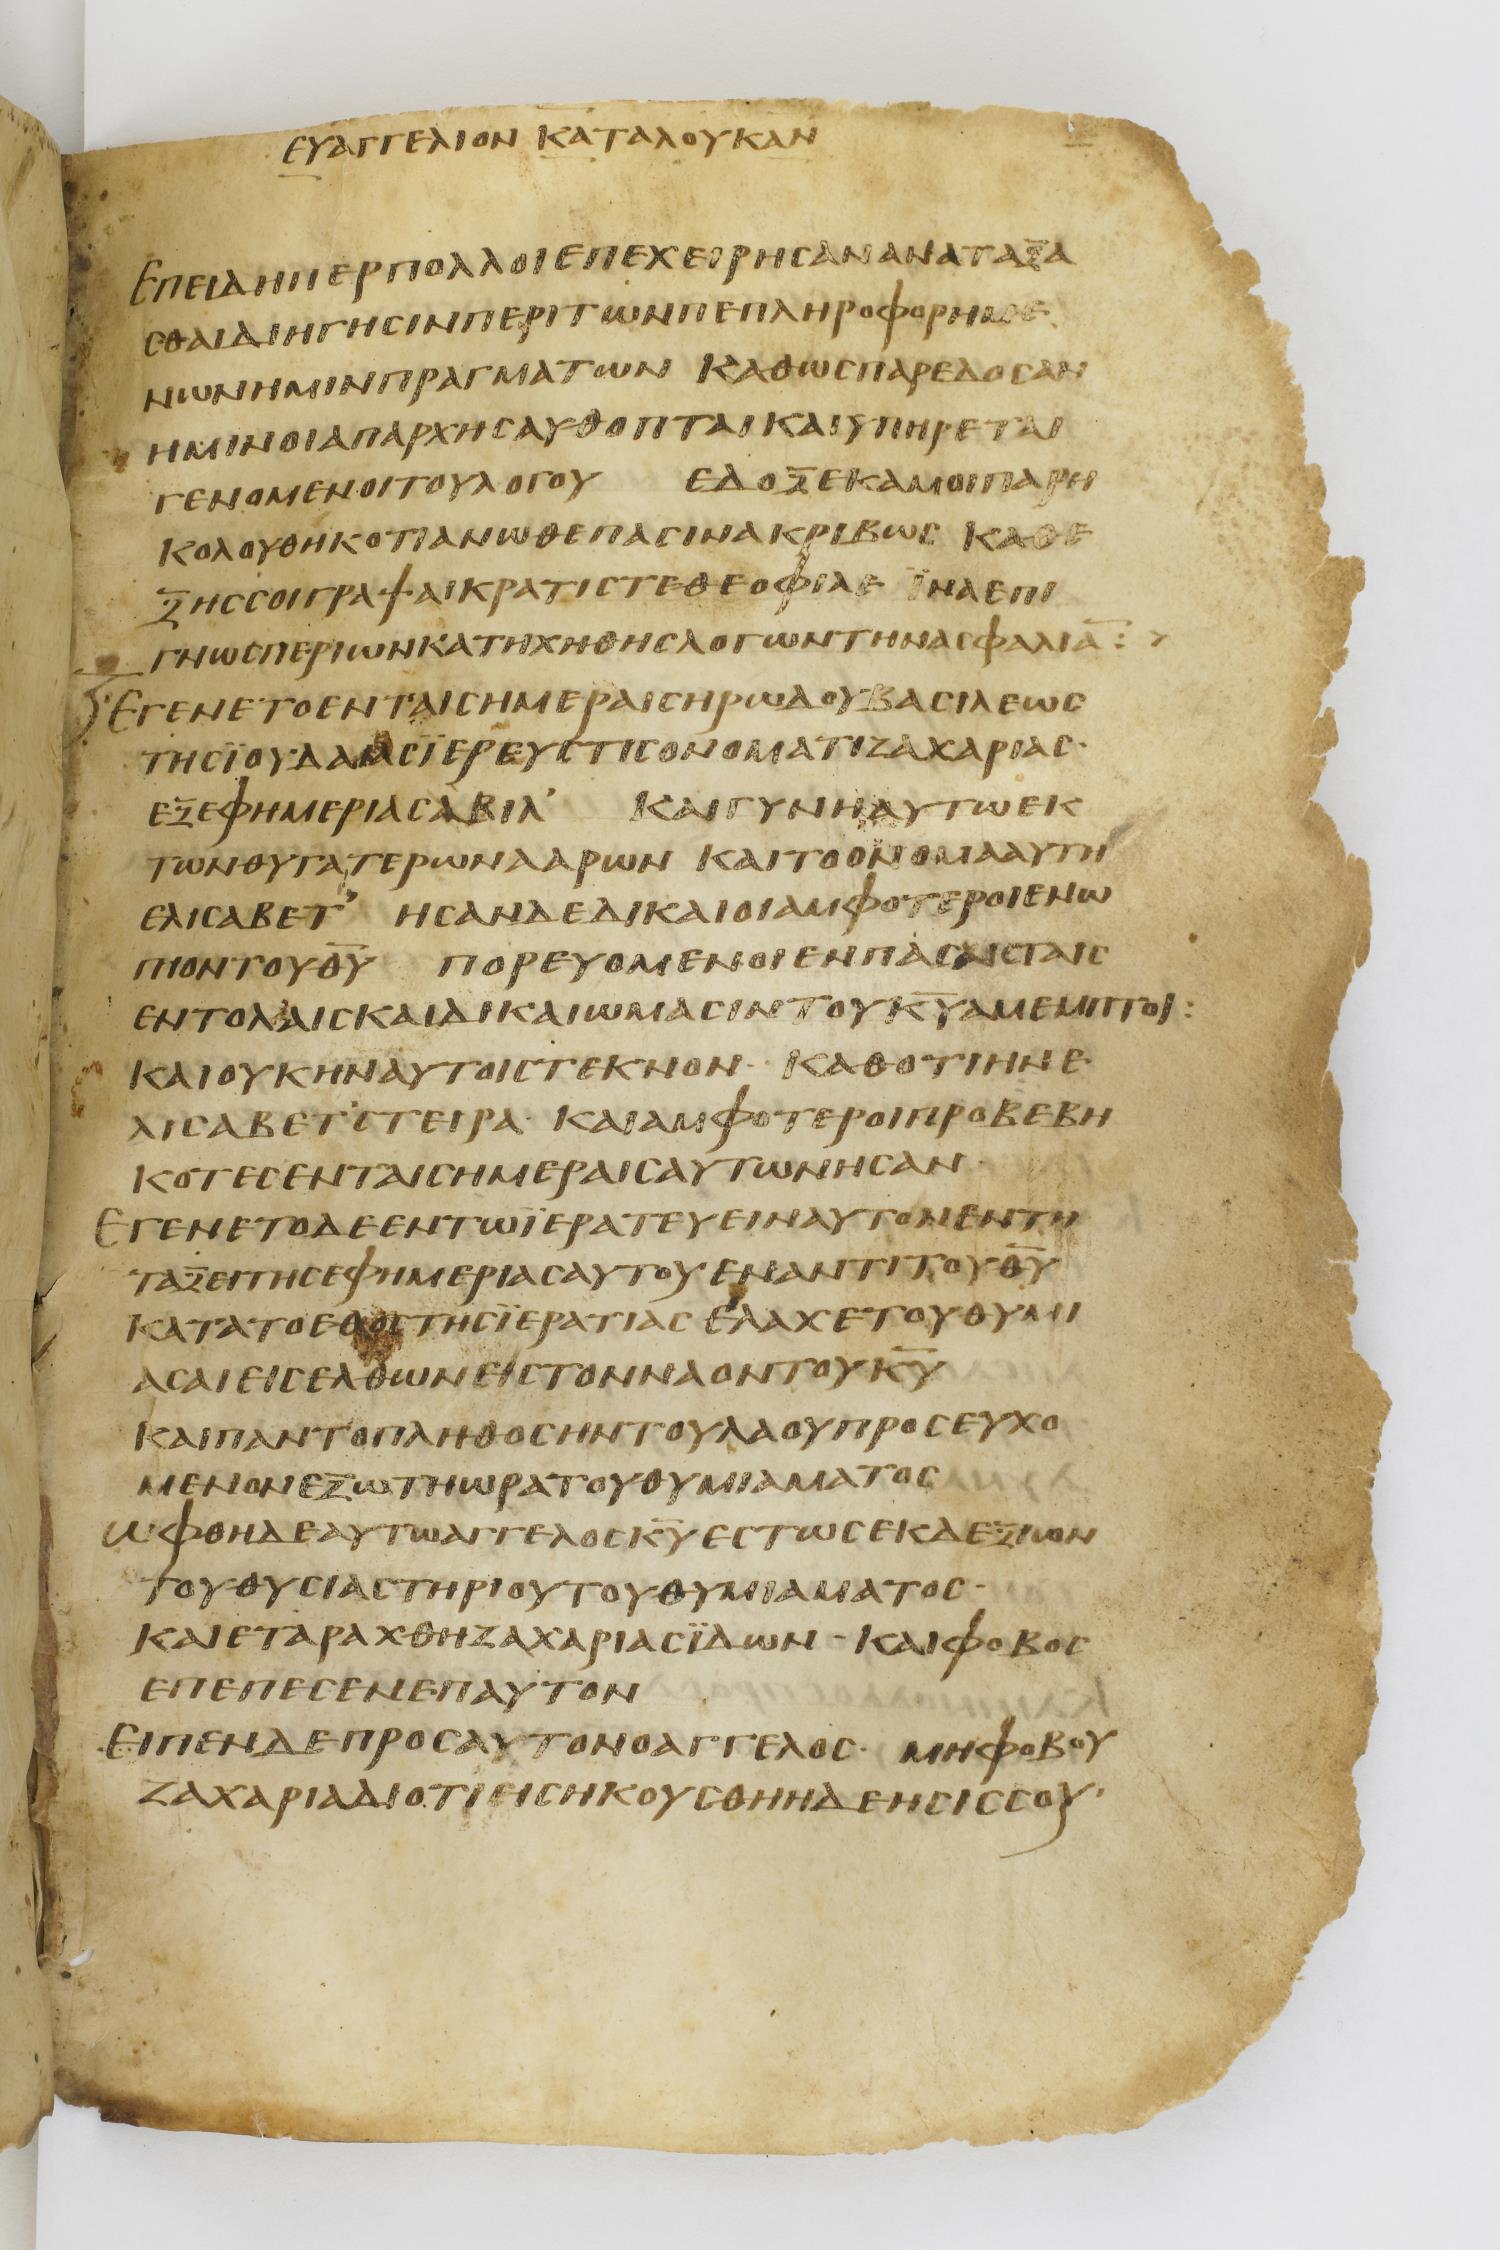 ΕΥΑΓΓΕΛΙΟΝ ΚΑΤΑΛΟΥΚΑΝ
ΕΠΕΙΔΗΠΕΡΠΟΛΛΟΙΕΠΕΧΕΙΡΗСΑΝΑΝΑΤΑΞΑ
СΘΑΙΔΙΗΓΗСΙΝΠΕΡΙΤΩΝΠΕΠΛΗΡΟΦΟΡΗΜΕ
ΝΩΝΗΜΙΝΠΡΑΓΜΑΤΩΝ ΚΑΘΩСΠΑΡΕΔΟСΑΝ
ΗΜΙΝΟΙΑΠΑΡΧΗСΑΥΘΟΠΤΑΙΚΑΙΥΠΗΡΕΤΑΙ
ΓΕΝΟΜΕΝΟΙΤΟΥΛΟΓΟΥ ΕΔΟΞΕΚΑΜΟΙΠΑΡΗ
ΚΟΛΟΥΘΗΚΟΤΙΑΝΩΘΕΠΑСΙΝΑΚΡΙΒΩС ΚΑΘΕ
ΞΗССΟΙΓΡΑΨΑΙΚΡΑΤΙСΤΕΘΕΟΦΙΛΕ ΪΝΑΕΠΙ
ΓΝΩСΠΕΡΙΩΝΚΑΤΗΧΗΘΗСΛΟΓΩΝΤΗΝΑСΦΑΛΙΑ̅:
ΕΓΕΝΕΤΟΕΝΤΑΙСΗΜΕΡΑΙСΗΡΩΔΟΥΒΑСΙΛΕΩС
ΤΗСΪΟΥΔΑΙΑСΪΕΡΕΥСΤΙСΟΝΟΜΑΤΙΖΑΧΑΡΙΑС·
ΕΞΕΦΗΜΕΡΙΑСΑΒΙΑ’ ΚΑΙΓΥΝΗΑΥΤΩΕΚ
ΤΩΝΘΥΓΑΤΕΡΩΝΑΑΡΩΝ ΚΑΙΤΟΟΝΟΜΑΑΥΤΗ
ΕΛΙСΑΒΕΤ’ ΗСΑΝΔΕΔΙΚΑΙΟΙΑΜΦΟΤΕΡΟΙΕΝΩ
ΠΙΟΝΤΟΥΘ̅Υ̅ ΠΟΡΕΥΟΜΕΝΟΙΕΝΠΑСΑΙСΤΑΙС
ΕΝΤΟΛΑΙСΚΑΙΔΙΚΑΙΩΜΑСΙΝΤΟΥΚ̅Υ̅ΑΜΕΜΠΤΟΙ:
ΚΑΙΟΥΚΗΝΑΥΤΟΙСΤΕΚΝΟΝ· ΚΑΘΟΤΙΗΝΕ
ΛΙСΑΒΕΤ’СΤΕΙΡΑ· ΚΑΙΑΜΦΟΤΕΡΟΙΠΡΟΒΕΒΗ
ΚΟΤΕСΕΝΤΑΙСΗΜΕΡΑΙСΑΥΤΩΝΗСΑΝ·
ΕΓΕΝΕΤΟΔΕΕΝΤΩΪΕΡΑΤΕΥΕΙΝΑΥΤΟΝΕΝΤΗ
ΤΑΞΕΙΤΗСΕΦΗΜΕΡΙΑСΑΥΤΟΥΕΝΑΝΤΙΤΟΥΘ̅Υ̅
ΚΑΤΑΤΟΕΘΟСΤΗСΪΕΡΑΤΙΑС ΕΛΑΧΕΤΟΥΘΥΜΙ
ΑСΑΙΕΙСΕΛΘΩΝΕΙСΤΟΝΝΑΟΝΤΟΥΚ̅Υ̅
ΚΑΙΠΑΝΤΟΠΛΗΘΟСΗΝΤΟΥΛΑΟΥΠΡΟСΕΥΧΟ
ΜΕΝΟΝΕΞΩΤΗΩΡΑΤΟΥΘΥΜΙΑΜΑΤΟС
ΩΦΘΗΔΕΑΥΤΩΑΓΓΕΛΟСΚ̅Υ̅ΕСΤΩСΕΚΔΕΞΙΩΝ
ΤΟΥΘΥСΙΑСΤΗΡΙΟΥΤΟΥΘΥΜΙΑΜΑΤΟС·
ΚΑΙΕΤΑΡΑΧΘΗΖΑΧΑΡΙΑСΪΔΩΝ· ΚΑΙΦΟΒΟС
ΕΠΕΠΕСΕΝΕΠΑΥΤΟΝ
ΕΙΠΕΝΔΕΠΡΟСΑΥΤΟΝΟΑΓΓΕΛΟС· ΜΗΦΟΒΟΥ
ΖΑΧΑΡΙΑΔΙΟΤΙΕΙСΗΚΟΥСΘΗΗΔΕΗСΙССΟΥ·